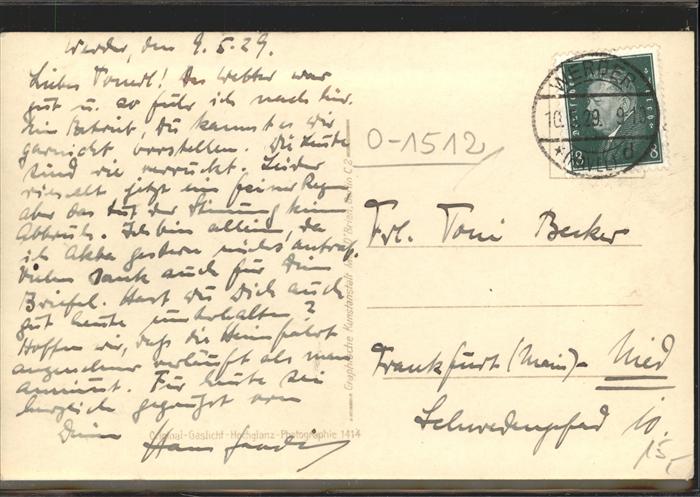 Werder, den 9.5.29.
Liebes Tomerl! Das Wetter war
gut u. so fuhr ich nach hier.
Ein Betrieb, Du kannst es Dir
garnicht vorstellen. Die Leute
sind wie verrückt. Leider
rieselt jetzt ein feiner Regen
aber das tut der Stimmung kein
Abbruch. Ich bin allein, da
ich gestern nichts antraf.
Vielen Dank auch für Dein
Briefel. Hast Du Dich auch
gut heute unterhalten?
Hoffen wir, daß die Heimfahrt
angenehmer verläuft als man
annimmt. Für heute sei
herzlich gegrüßt von
Deinem Hans
Original-Gaslicht-Hochglanz-Photographie 1414
Graphische Kunstanstalt Berlin C 2
O-1512
WERDER
10.5.29. 9-10
(HAVEL)
d
DEUTSCHES REICH
8 8
Frl. Toni Becker
Frankfurt (Main)-Nied
Schwedenpfad 10.
15,-